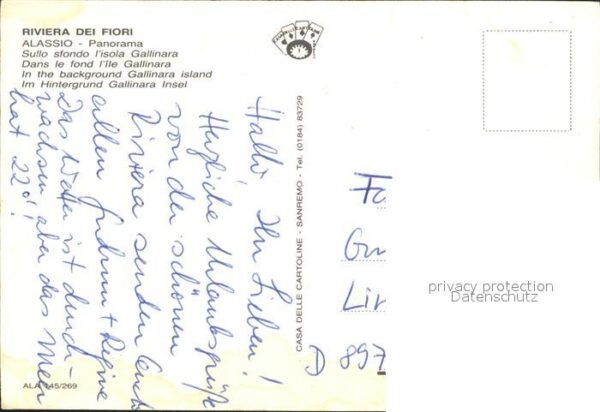 RIVIERA DEI FIORI
ALASSIO - Panorama
Sullo sfondo l'isola Gallinara
Dans le fond l'île Gallinara
In the background Gallinara island
Im Hintergrund Gallinara Insel
Hallo Ihr Lieben!
Herzliche Urlaubsgrüße
von der schönen
Riviera senden Euch
allen + Regine
Das Wetter ist durch-
wachsen aber das Meer
hat 22°!
CASA DELLE CARTOLINE - SANREMO - Tel. (0184) 83729
Fo
Gu
Lin
D 897
privacy protection
Datenschutz
ALA 145/269